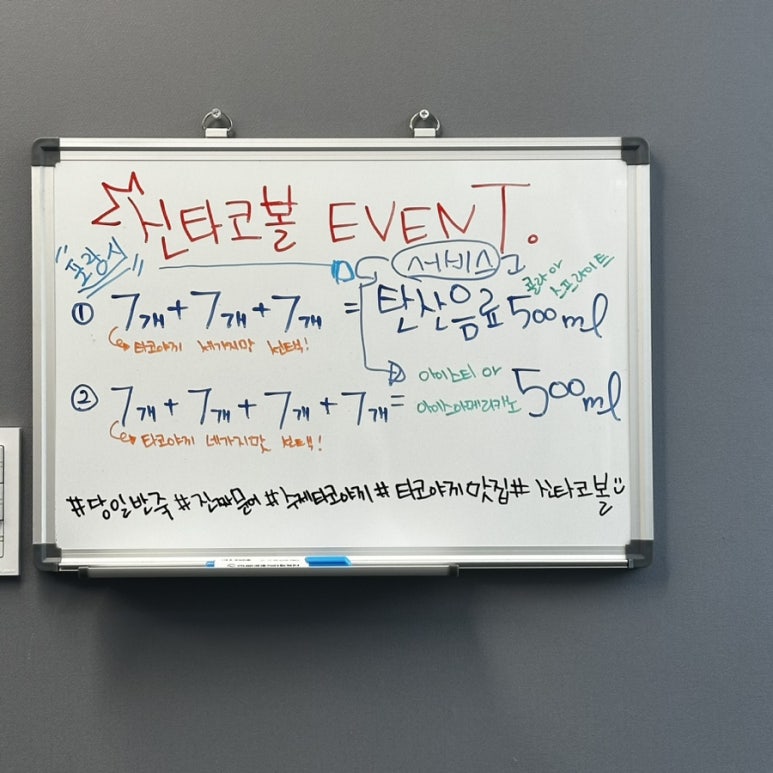 신타코볼 EVENT.
"포장시"
서비스
콜라 or
스프라이트
① 7개 + 7개 + 7개 = 탄산음료 500ml
타코야끼 세가지맛 선택!
아이스티 or
아이스아메리카노 500ml
② 7개 + 7개 + 7개 + 7개 =
타코야끼 네가지맛 선택!
#당일반죽 #진짜문어 #수제타코야끼 #타코야끼맛집 #신타코볼